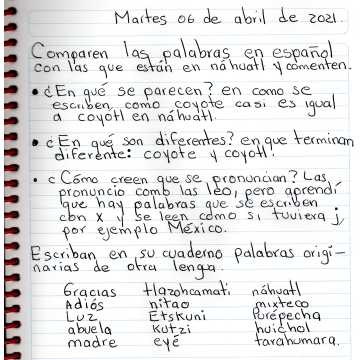 Martes 06 de abril de 2021.
Comparen las palabras en español
con las que están en náhuatl y comenten.
• ¿En qué se parecen? en como se
escriben como coyote casi es igual
a coyotl en náhuatl.
• ¿En qué son diferentes? en que terminan
diferente: coyote y coyotl.
• ¿Cómo creen que se pronuncian? Las
pronuncio como las leo, pero aprendí
que hay palabras que se escriben
con x y se leen como si tuviera j,
por ejemplo México.
Escriban en su cuaderno palabras origi-
narias de otra lengua.
Gracias tlazohcamati náhuatl
Adiós nitao mixteco
Luz Etskuni Purépecha
abuela kutzi huichol
madre eyé tarahumara.